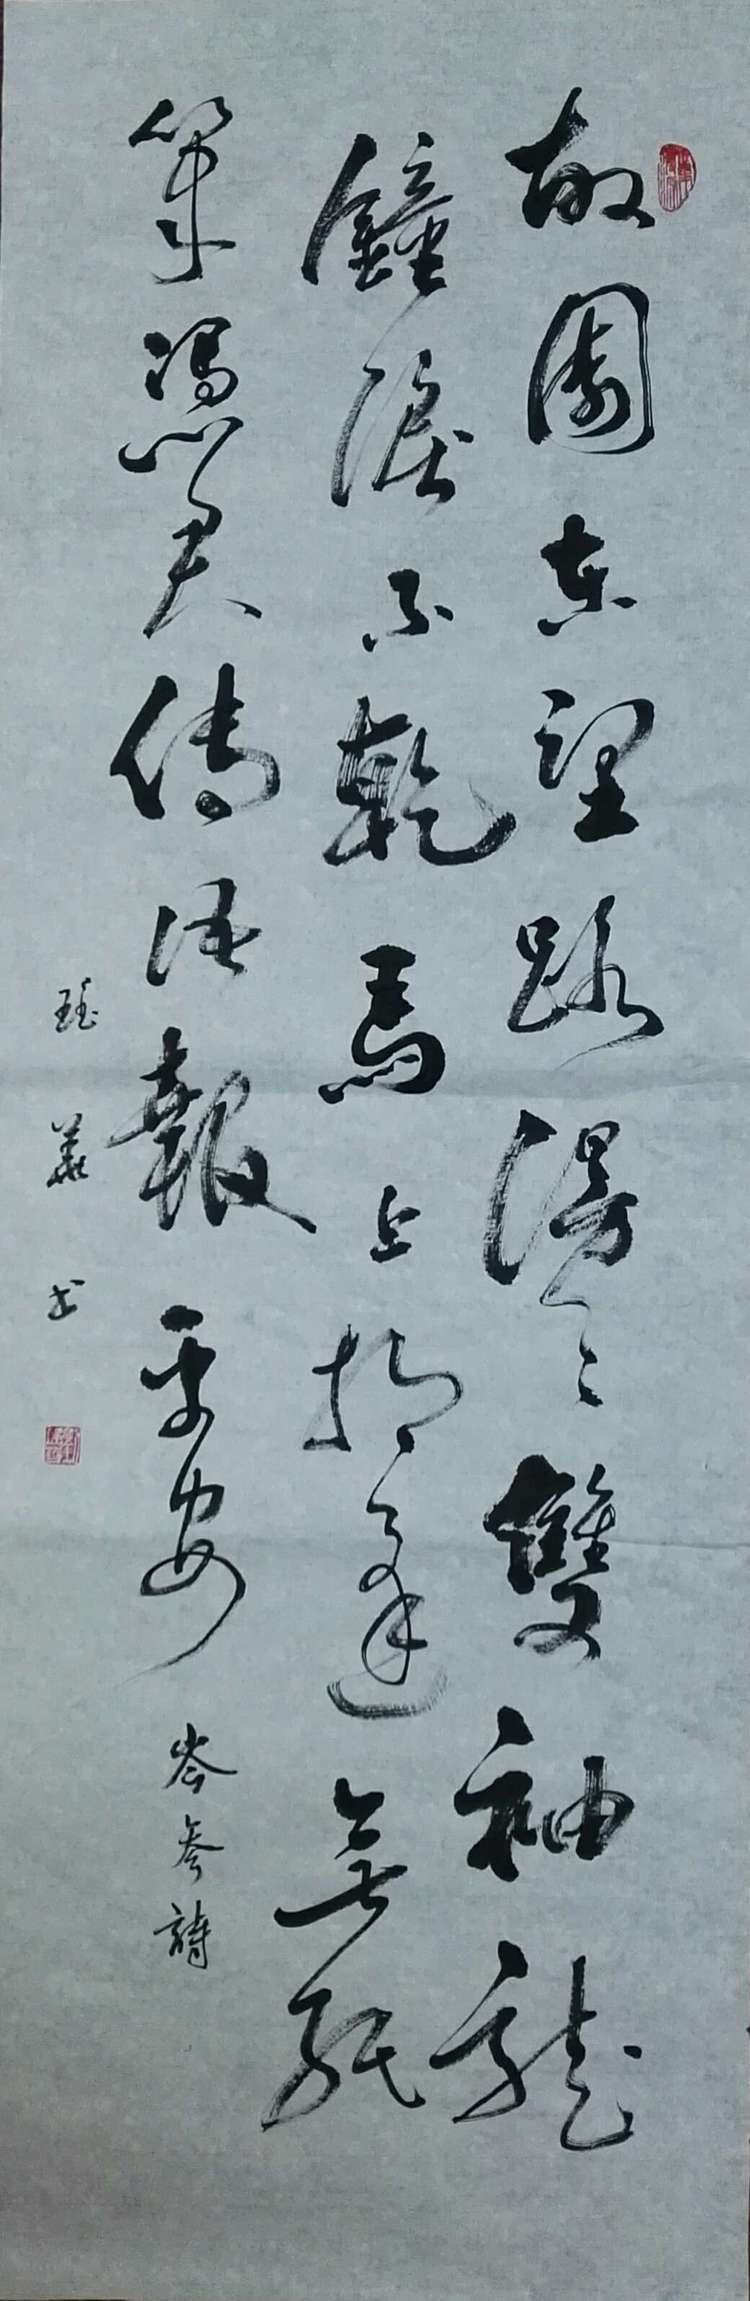 故園東望路漫〻雙袖龍
鐘淚不乾馬上相逢無紙
筆憑君傳語報平安 岑參詩
華書